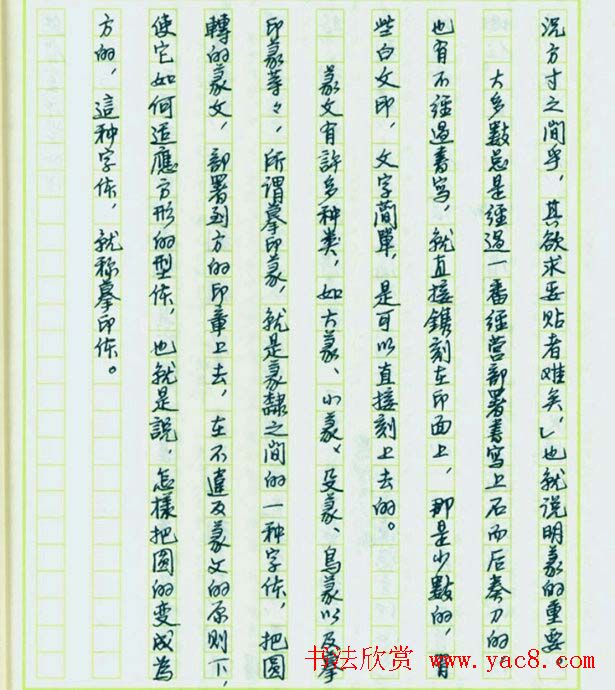 况方寸之间乎，其欲求妥贴者难矣，」也就说明篆的重要。
大多數总是經過一番經营部署書寫上石而后奏刀的
也有不經過書寫，就直接鐫刻在印面上，那是少數的，有
些白文印，文字蕳單，是可以直接刻上去的。
篆文有許多种类，如大篆、小篆、殳篆、鳥篆以及摹
印篆等々，所谓摹印篆，就是篆隸之间的一种字体，把圆
轉的篆文，部署到方的印章上去，在不違反篆文的原则下，
使它如何适應方形的型体，也就是說，怎樣把圆的变成为
方的，這种字体，就称摹印体。
书法欣赏 www.yac8.com